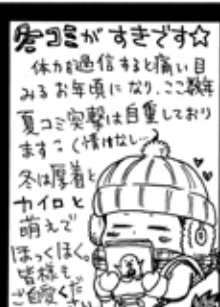 冬コミがすきです☆
体力を過信すると痛い目
みるお年頃になり、ここ数年
夏コミ突撃は自重しており
ますごく情けなし…
冬は厚着と
カイロと
萌えで
ほっくほく。
皆様も
ご自愛くだ
さい